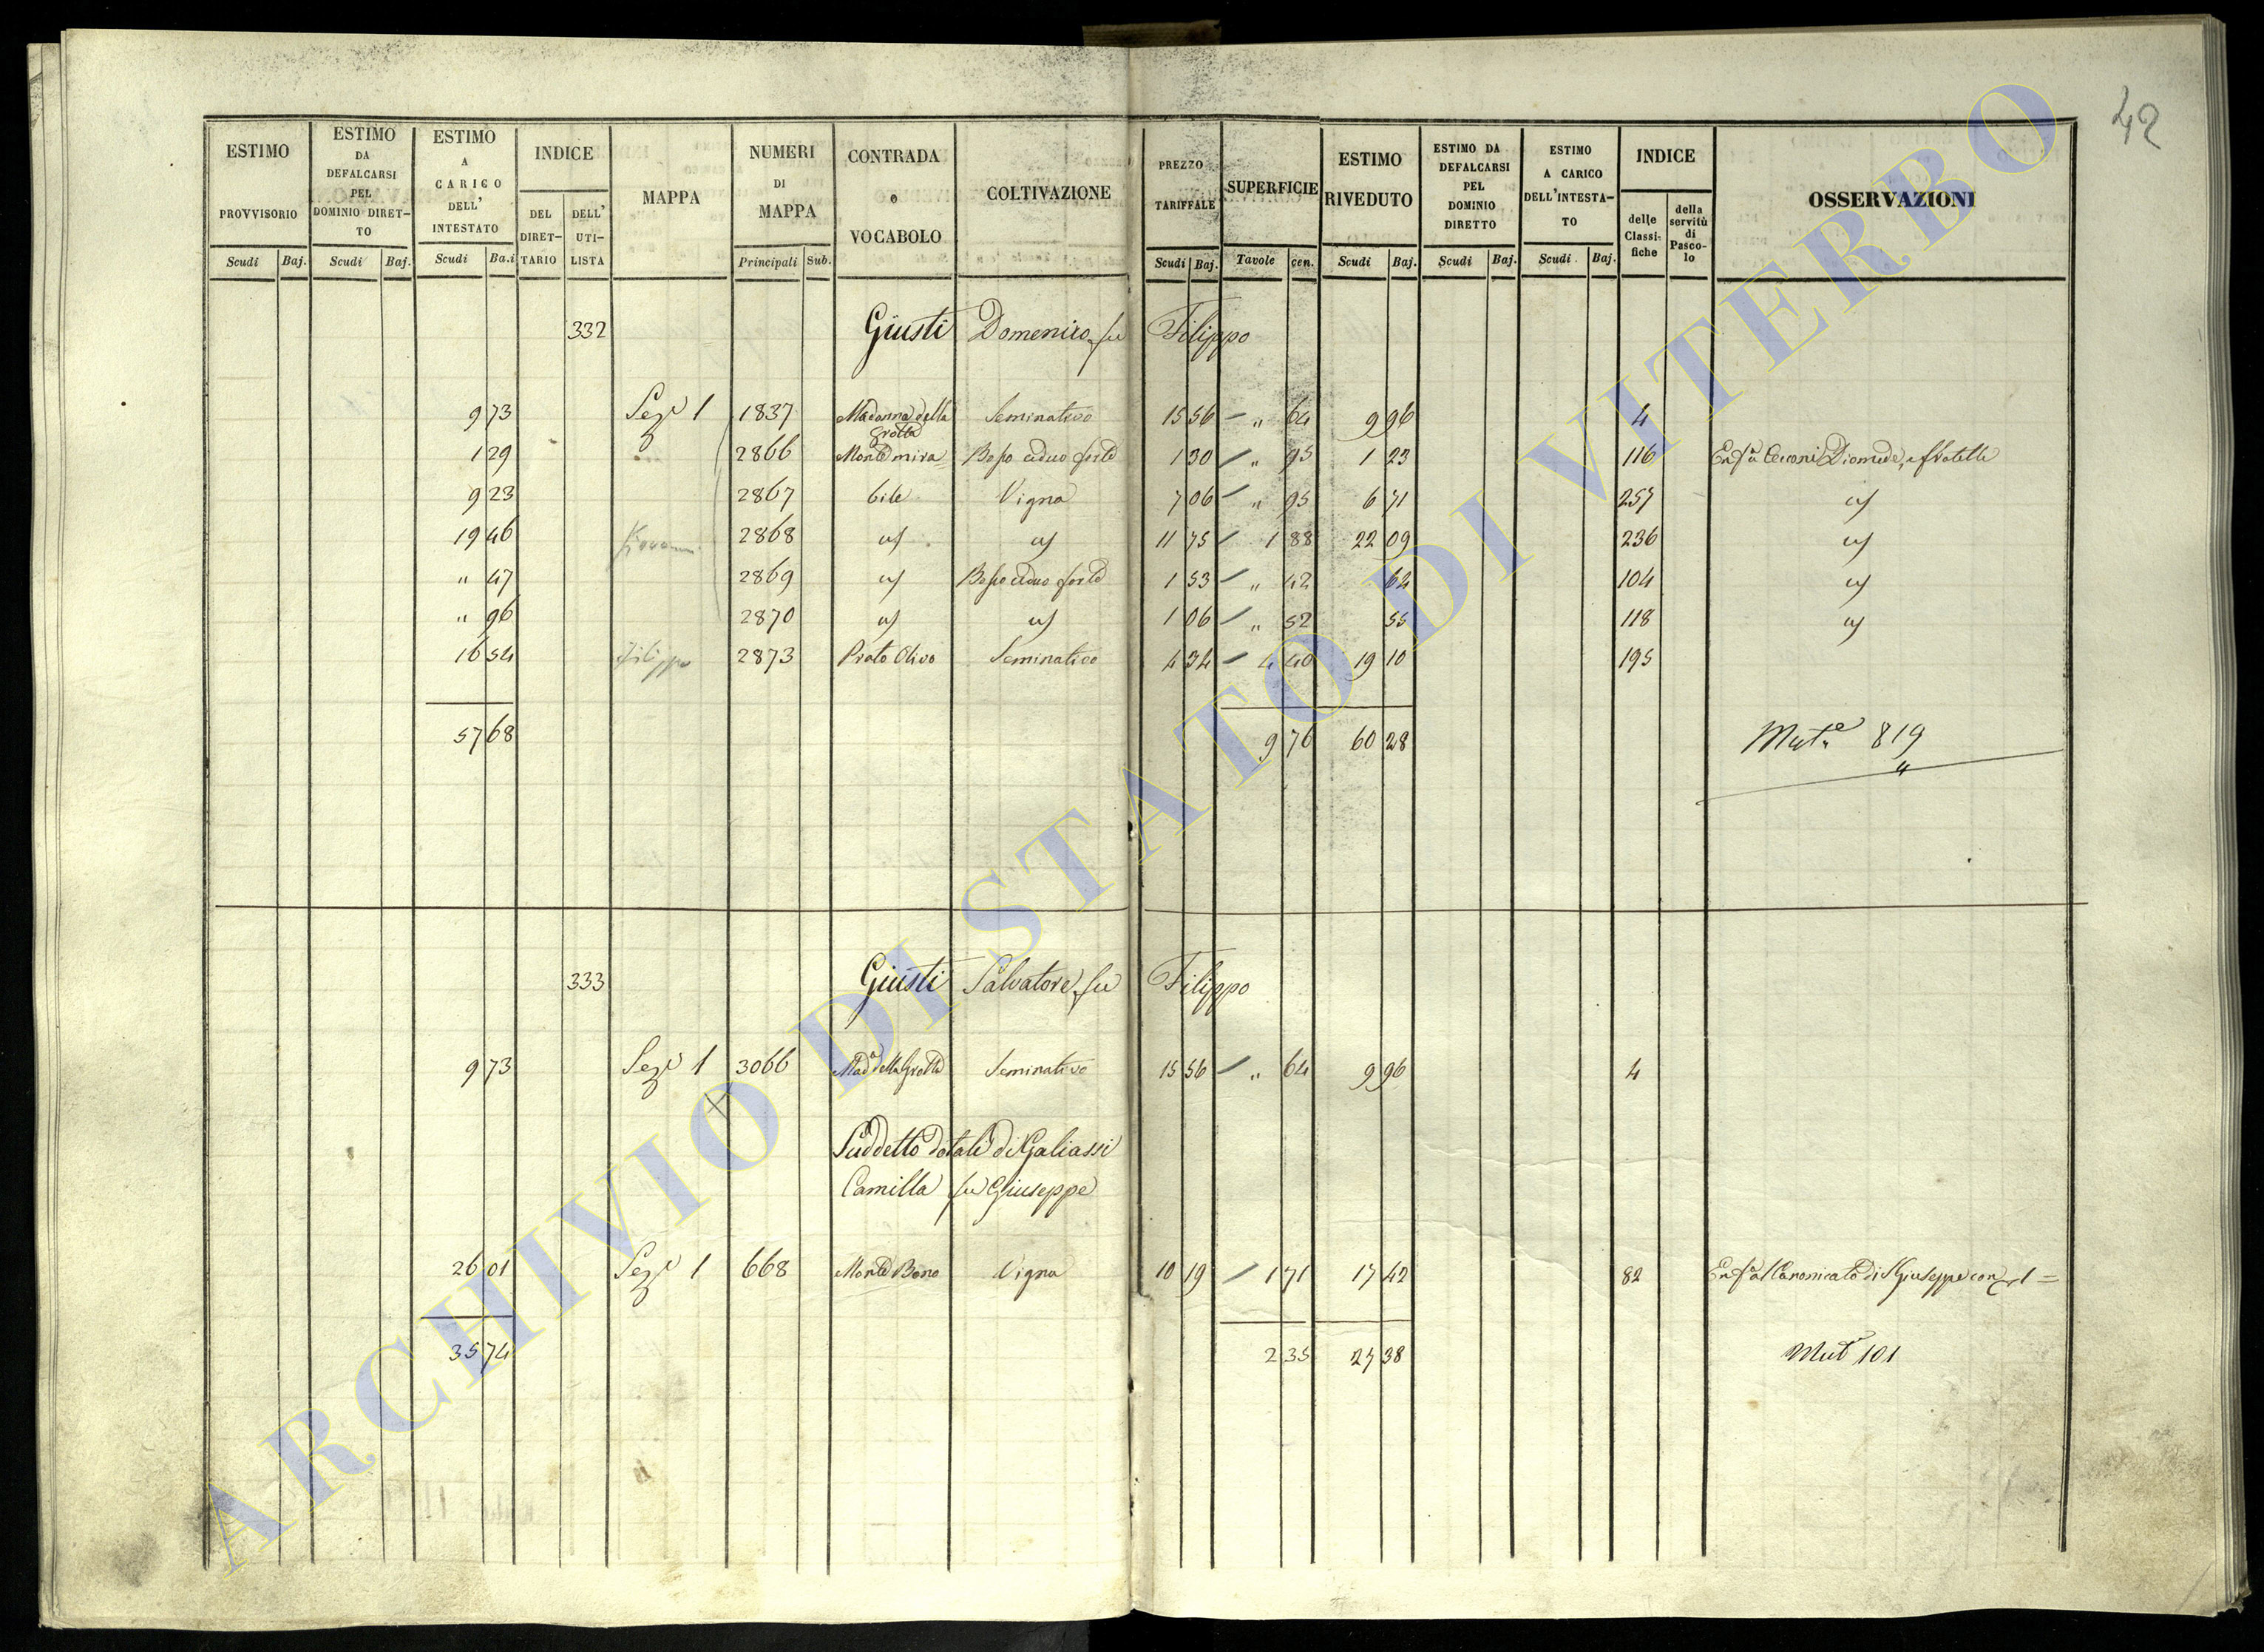 42
ESTIMO PROVVISORIO | ESTIMO DA DEFALCARSI PEL DOMINIO DIRETTO | ESTIMO A CARICO DELL' INTESTATO | INDICE | MAPPA | NUMERI DI MAPPA | CONTRADA o VOCABOLO | COLTIVAZIONE | PREZZO TARIFFALE | SUPERFICIE | ESTIMO RIVEDUTO | ESTIMO DA DEFALCARSI PEL DOMINIO DIRETTO | ESTIMO A CARICO DELL'INTESTATO | INDICE | OSSERVAZIONI
DEL DIRETTARIO | DELL' UTILISTA | delle Classifiche | della servitù di Pascolo
Scudi | Baj. | Scudi | Baj. | Scudi | Ba.i | Principali | Sub. | Scudi | Baj. | Tavole | cen. | Scudi | Baj. | Scudi | Baj. | Scudi | Baj.
332 Giusti Domenico fu Filippo
9 73 | Seze 1 | 1837 | Madonna della Grotta | Seminativo | 15 56 | " 64 | 9 96 | 4
1 29 | 2866 | Monte mira= | Bosco ceduo forte | 1 30 | " 95 | 1 23 | 116 | Enfa Cecconi Diomede, e fratelli
9 23 | 2867 | bile | Vigna | 7 06 | " 95 | 6 71 | 257 | id
19 46 | Giovanni | 2868 | id | id | 11 75 | 1 88 | 22 09 | 236 | id
" 47 | 2869 | id | Bosco ceduo forte | 1 53 | " 42 | 64 | 104 | id
" 96 | 2870 | id | id | 1 06 | " 52 | 55 | 118 | id
16 54 | Filippo | 2873 | Prato Olivo | Seminativo | 4 34 | 4 40 | 19 10 | 195
57 68 | 9 76 | 60 28 | Mute 819
333 Giusti Salvatore fu Filippo
9 73 | Seze 1 | 3066 | Mada della Grotta | Seminativo | 15 56 | " 64 | 9 96 | 4
Suddetto dotali di Galiassi
Camilla fu Giuseppe
26 01 | Seze 1 | 668 | Monte Bono | Vigna | 10 19 | 1 71 | 17 42 | 82 | Enfa al Canonicato di S Giuseppe con
35 74 | 2 35 | 27 38 | Mut 101
ARCHIVIO DI STATO DI VITERBO